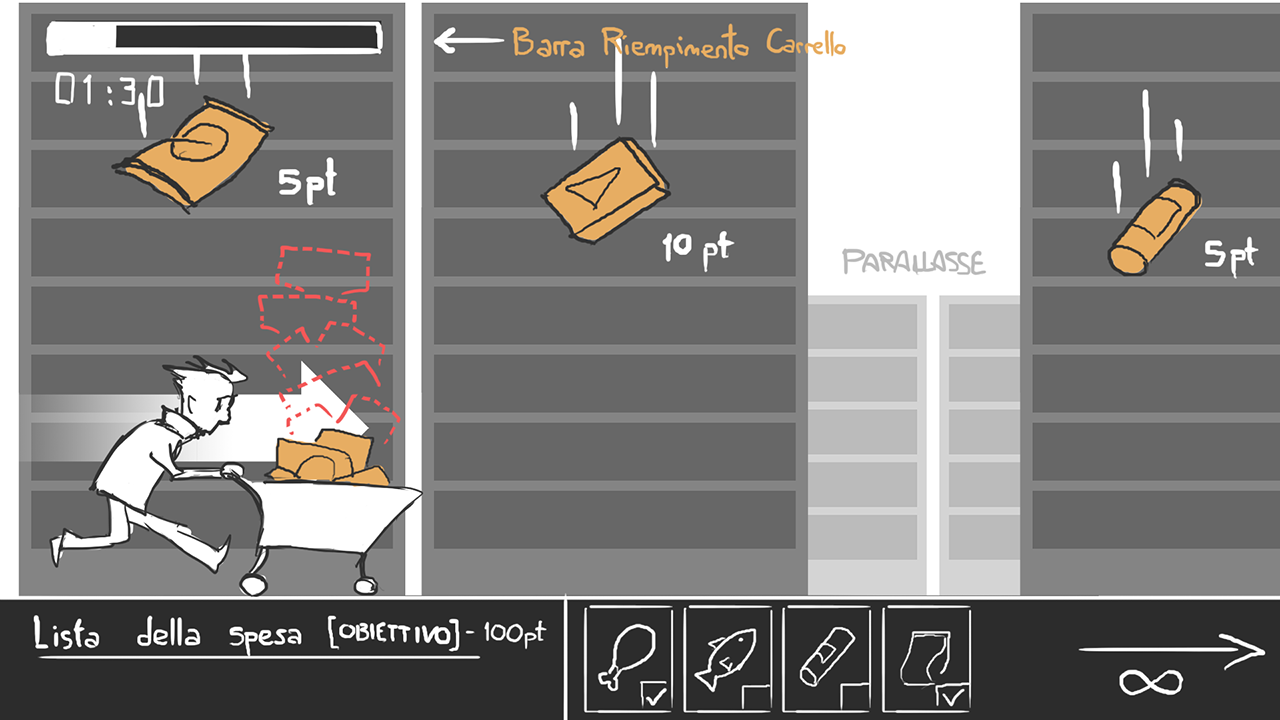 Barra Riempimento Carrello
01:30
5pt
10 pt
PARALLASSE
5pt
Lista della spesa [OBIETTIVO] - 100pt
∞